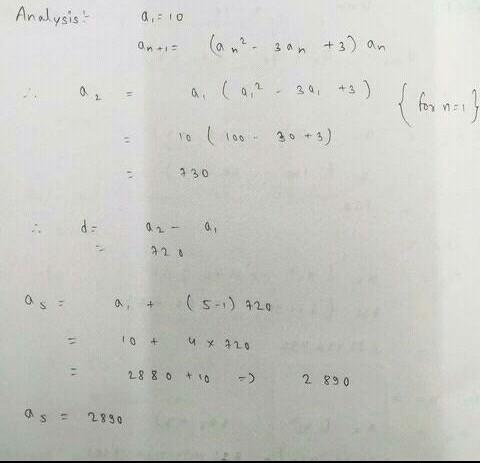 Analysis:- a₁ = 10
aₙ₊₁ = (aₙ² - 3aₙ + 3) aₙ
∴ a₂ = a₁ (a₁² - 3a₁ + 3) {for n=1}
= 10 (100 - 30 + 3)
= 730
∴ d = a₂ - a₁
= 720
a₅ = a₁ + (5-1) 720
= 10 + 4 × 720
= 2880 + 10 => 2890
a₅ = 2890